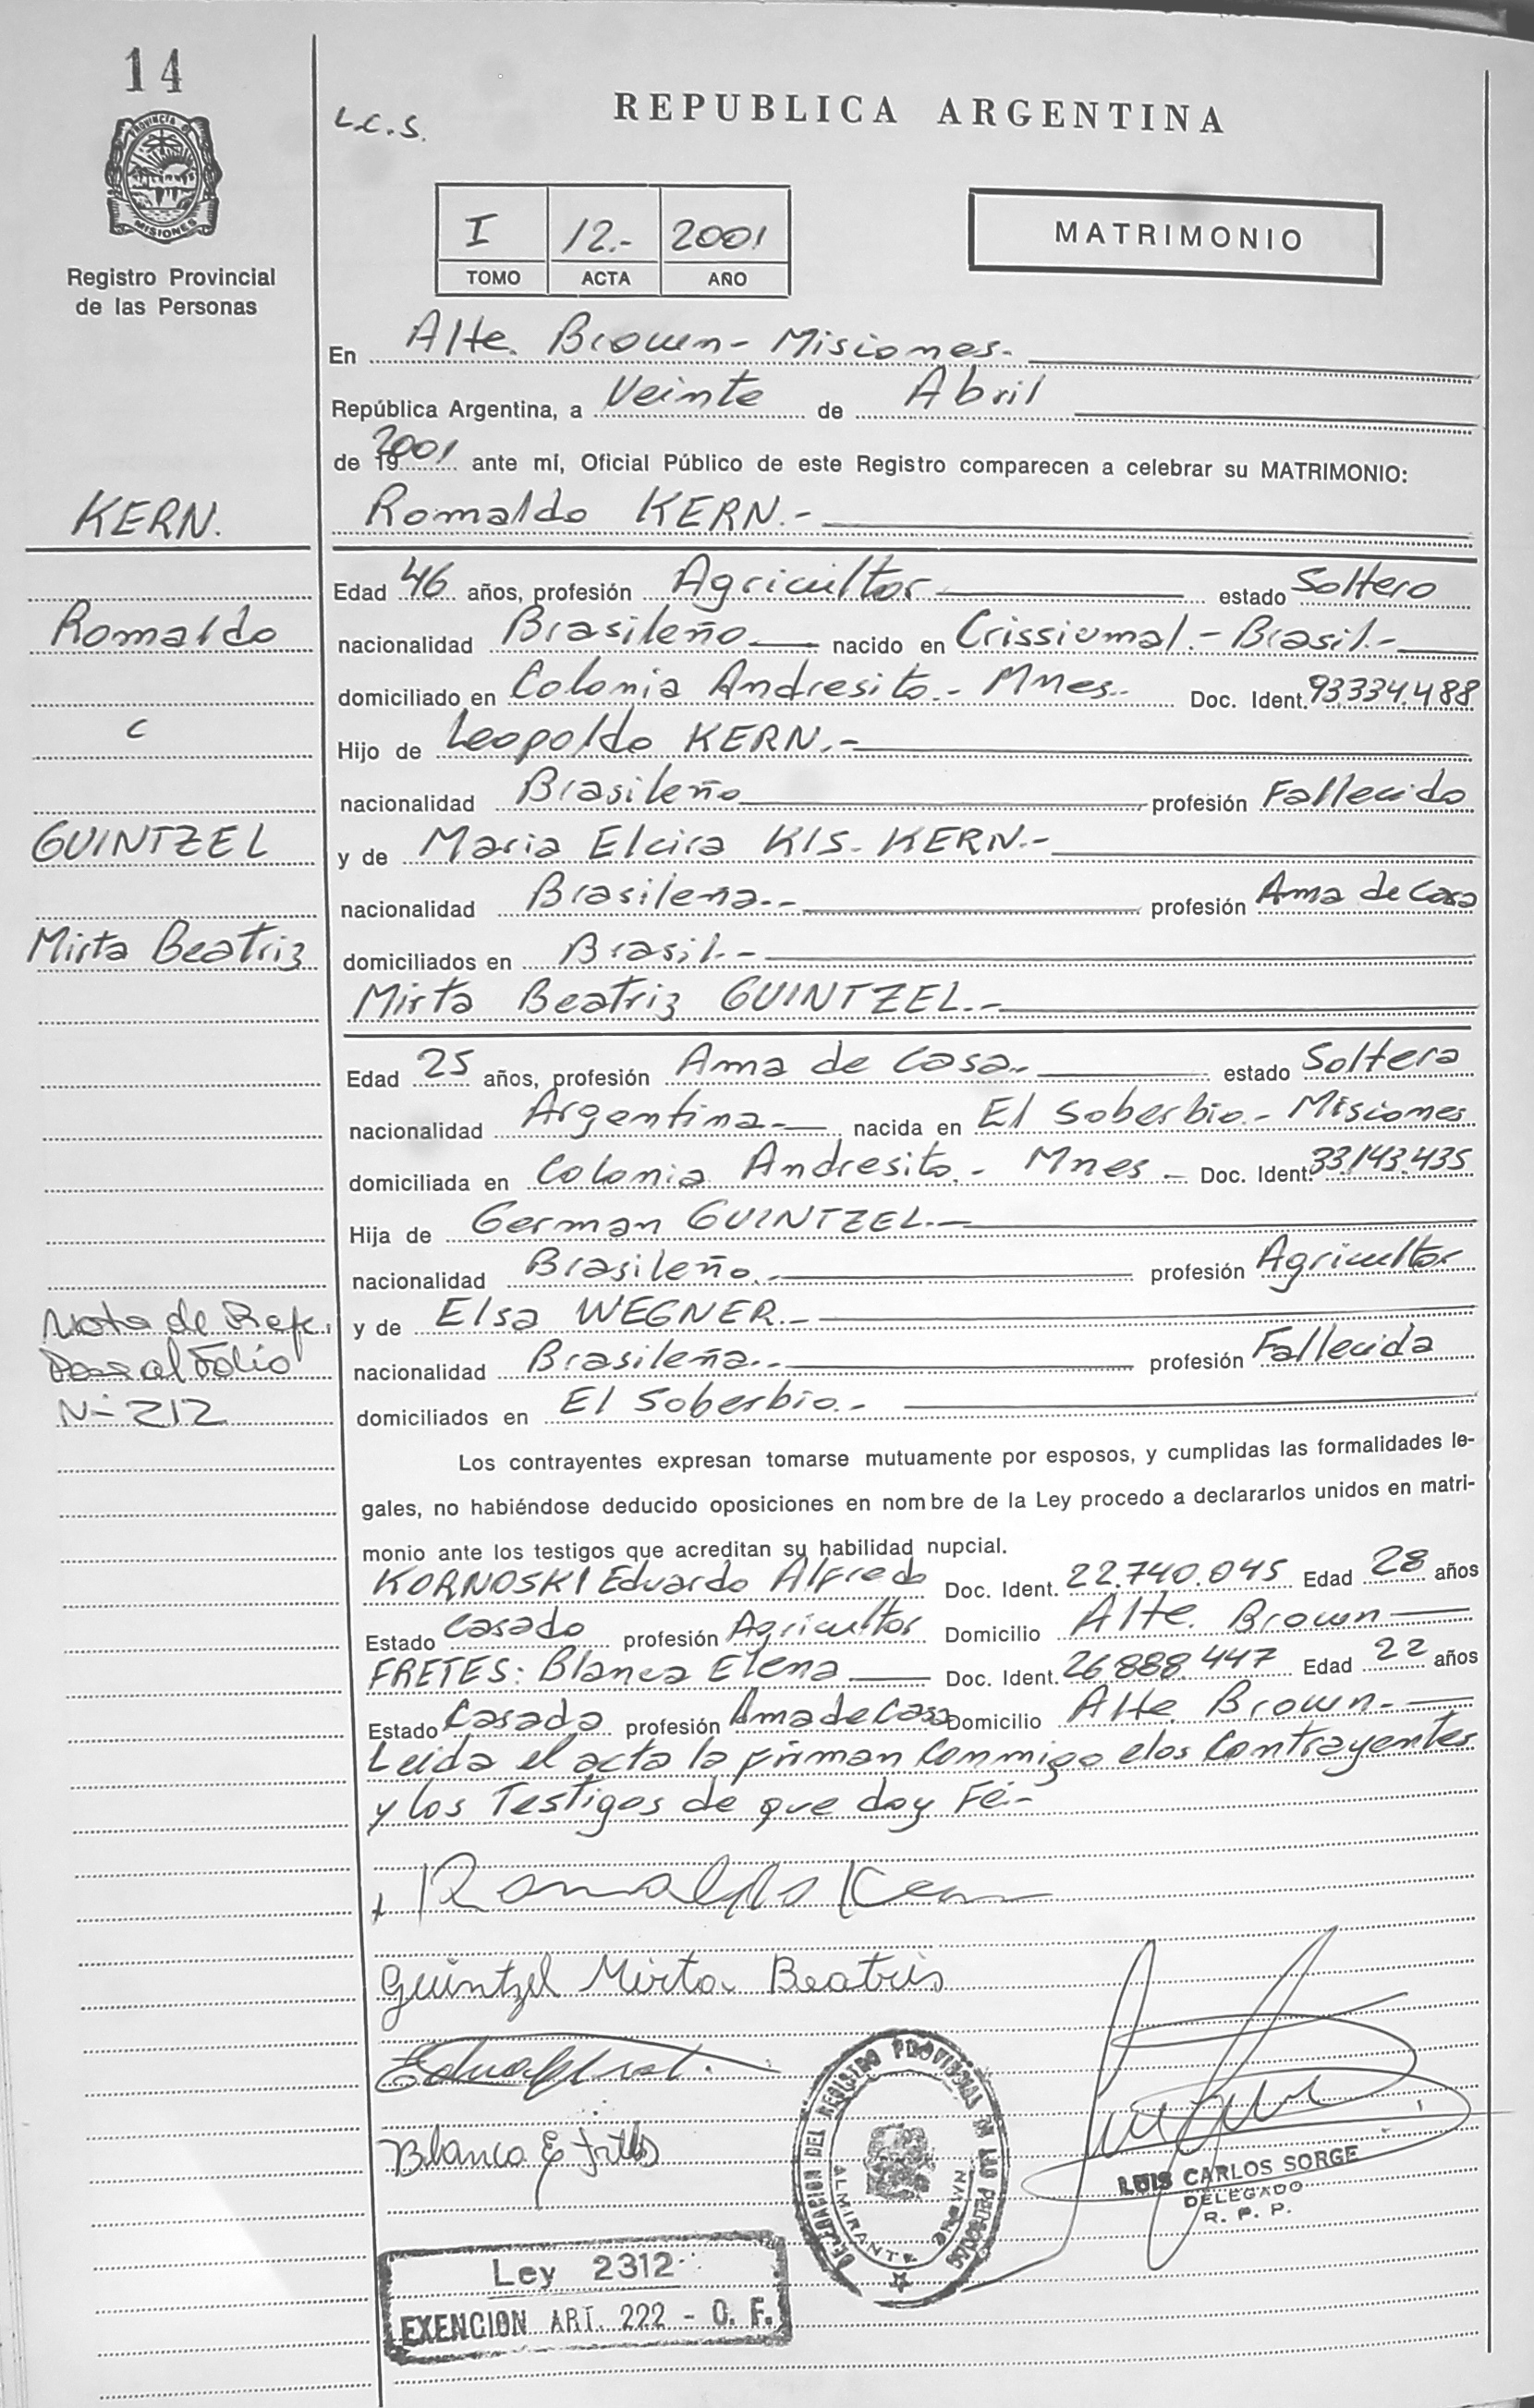 14
L.C.S.
REPUBLICA ARGENTINA
PROVINCIA DE
MISIONES
Registro Provincial
de las Personas
I 12.- 2001
TOMO ACTA AÑO
MATRIMONIO
En Alte. Brown - Misiones.-
República Argentina, a Veinte de Abril
de 2001 ante mí, Oficial Público de este Registro comparecen a celebrar su MATRIMONIO:
KERN.
Romaldo KERN.-
Edad 46 años, profesión Agricultor estado Soltero
Romaldo
nacionalidad Brasileño nacido en Crissiumal.- Brasil.-
domiciliado en Colonia Andresito.- Mnes.- Doc. Ident. 93.334.488
c
Hijo de Leopoldo KERN.-
nacionalidad Brasileño profesión Fallecido
GUINTZEL
y de Maria Elcira KIS- KERN.-
nacionalidad Brasileña.- profesión Ama de Casa
Mirta Beatriz
domiciliados en Brasil.-
Mirta Beatriz GUINTZEL.-
Edad 25 años, profesión Ama de Casa.- estado Soltera
nacionalidad Argentina.- nacida en El Soberbio.- Misiones
domiciliada en Colonia Andresito.- Mnes.- Doc. Ident. 33.143.435
Hija de German GUINTZEL.-
nacionalidad Brasileño.- profesión Agricultor
Nota de Refe.
y de Elsa WEGNER.-
Pase al Folio
nacionalidad Brasileña.- profesión Fallecida
Nº 212
domiciliados en El Soberbio.-
Los contrayentes expresan tomarse mutuamente por esposos, y cumplidas las formalidades le-
gales, no habiéndose deducido oposiciones en nombre de la Ley procedo a declararlos unidos en matri-
monio ante los testigos que acreditan su habilidad nupcial.
KORNOSKI Eduardo Alfredo Doc. Ident. 22.740.045 Edad 28 años
Estado Casado profesión Agricultor Domicilio Alte. Brown
FRETES: Blanca Elena Doc. Ident. 26.888.447 Edad 22 años
Estado Casada profesión Ama de Casa Domicilio Alte. Brown.-
Leida el acta la firman Conmigo elos Contrayentes
y los Testigos de que doy Fé.-
Romaldo Kern
Guintzel Mirta Beatris
Blanca E Fretes
DELEGACION DEL REGISTRO PROVINCIAL DE LAS PERSONAS
ALMIRANTE BROWN
LUIS CARLOS SORGE
DELEGADO
R. P. P.
Ley 2312
EXENCION ART. 222 - O. F.